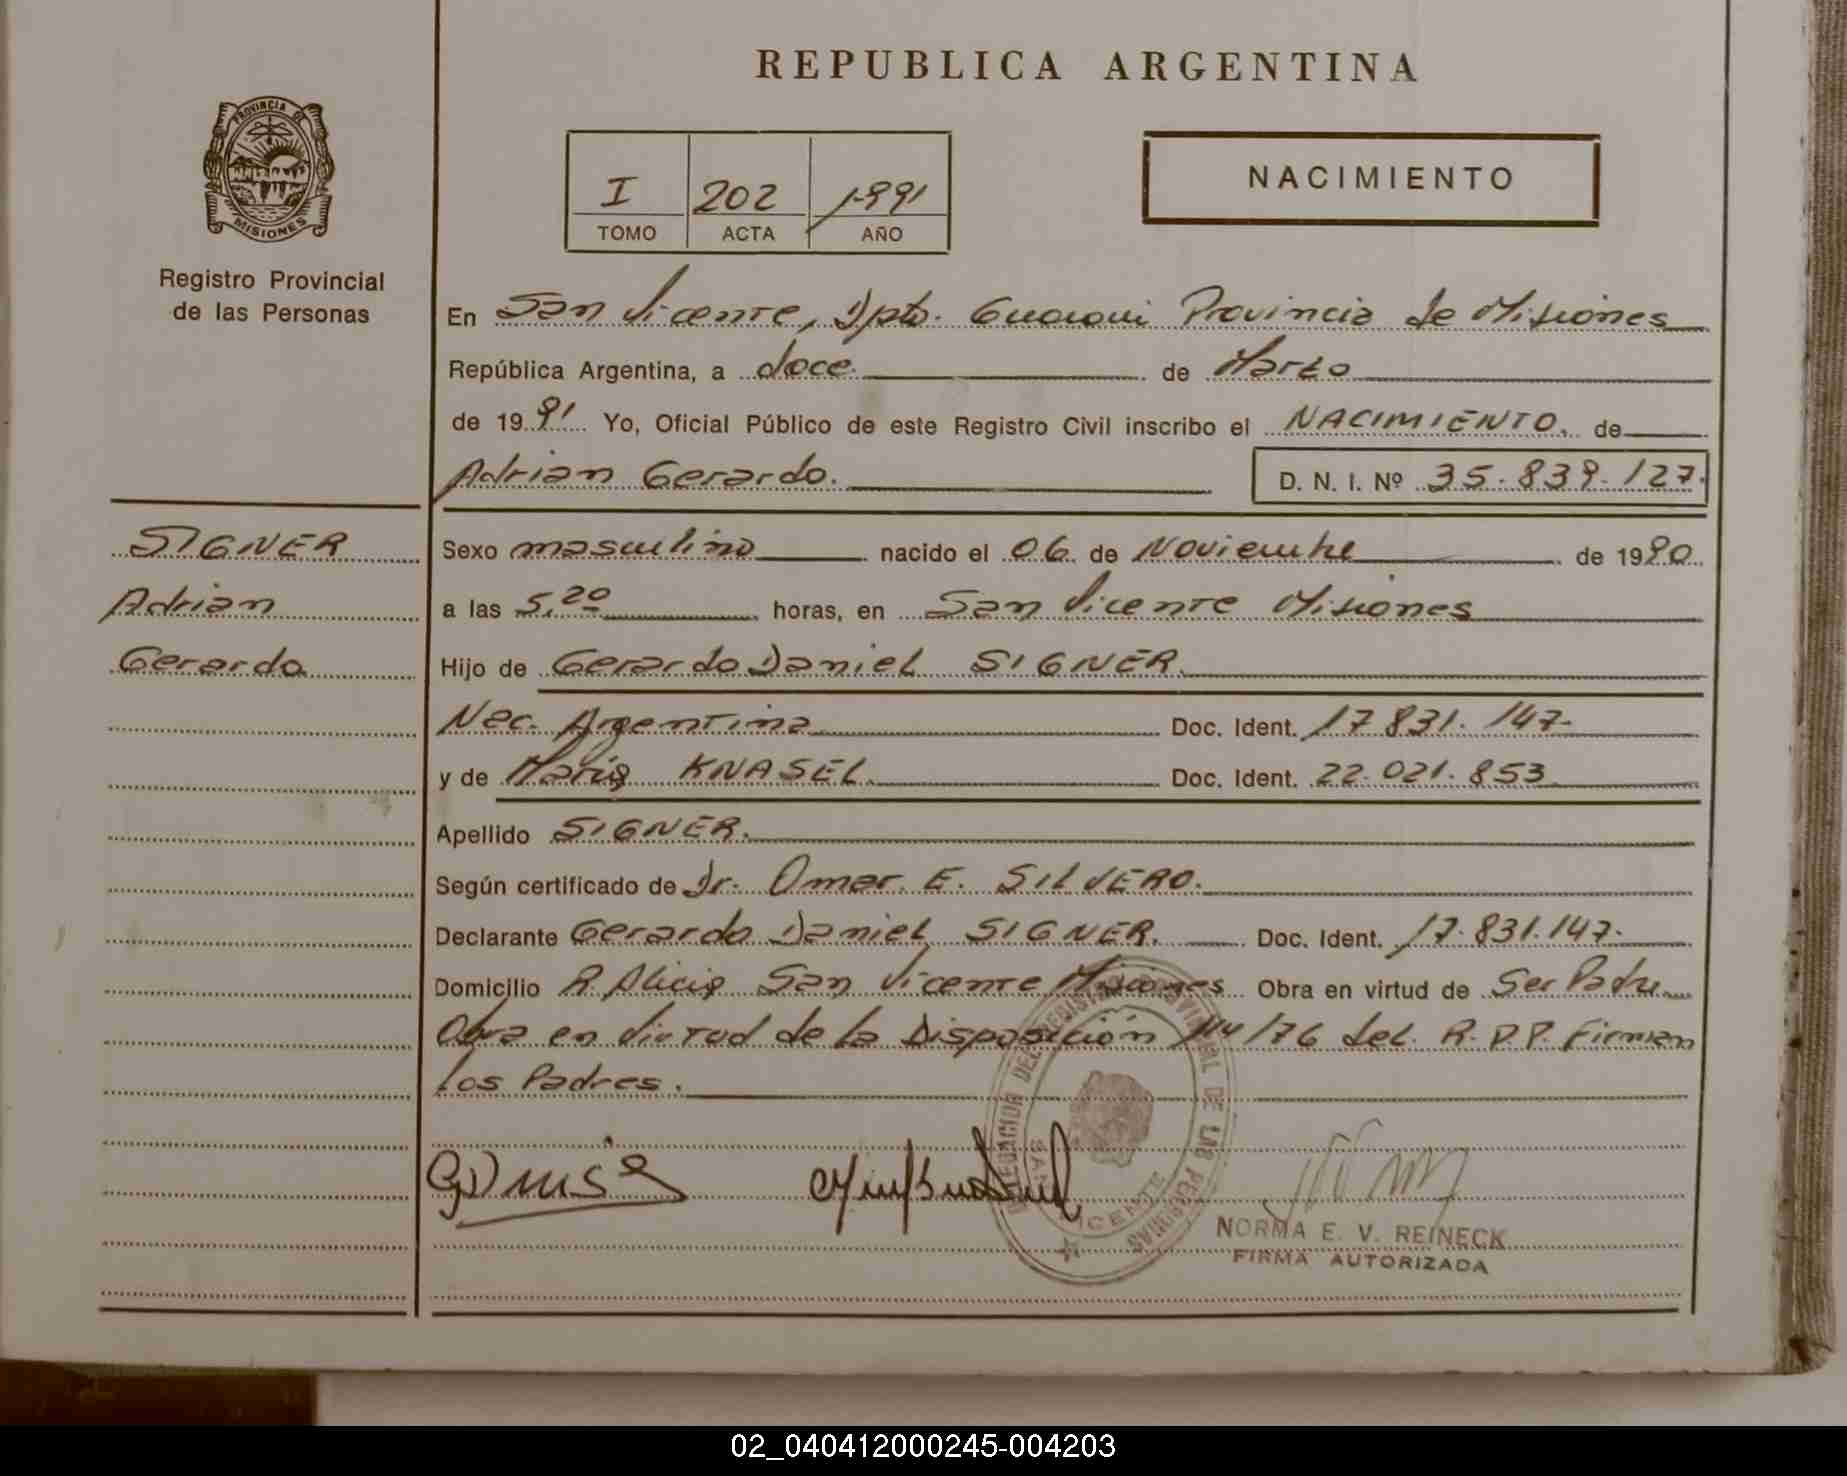 REPUBLICA ARGENTINA
PROVINCIA DE
MISIONES
Registro Provincial
de las Personas
I 202 1991
TOMO ACTA AÑO
NACIMIENTO
En San Vicente, Dpto. Guarani Provincia de Misiones
República Argentina, a doce de Marzo
de 1991 Yo, Oficial Público de este Registro Civil inscribo el NACIMIENTO. de
Adrian Gerardo. D. N. I. Nº 35.839.127.
SIGNER
Adrian
Gerardo
Sexo masculino nacido el 06 de Noviembre de 1990
a las 5,20 horas, en San Vicente Misiones
Hijo de Gerardo Daniel SIGNER.
Nac. Argentina Doc. Ident. 17 831. 147.
y de Maria KNASEL. Doc. Ident. 22.021.853
Apellido SIGNER.
Según certificado de Dr. Omar E. SILVERO.
Declarante Gerardo Daniel SIGNER. Doc. Ident. 17.831.147.
Domicilio P. Alicia San Vicente Misiones Obra en virtud de Ser Padre
Obra en virtud de la Disposición /76 del R.P.P. Firman
los Padres.
NORMA E. V. REINECK
FIRMA AUTORIZADA
02_040412000245-004203